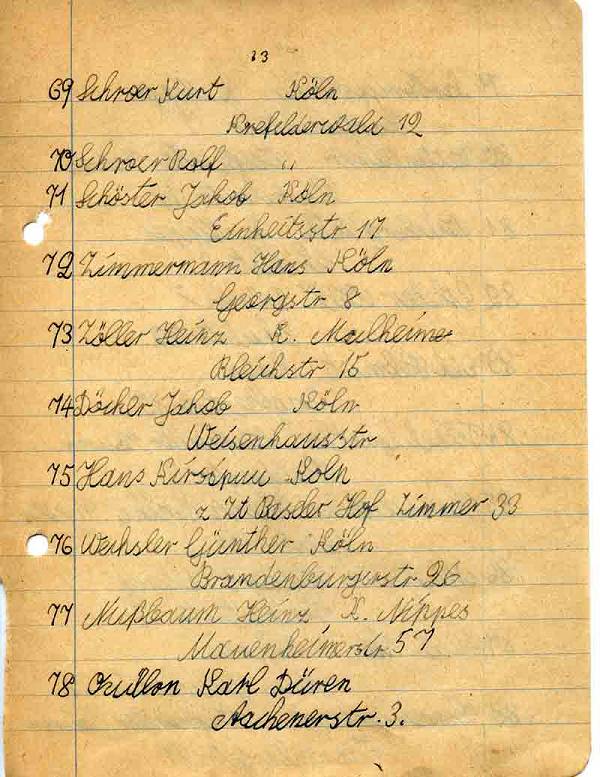 13
69 Schroer Kurt Köln
Krefelderwald 12
70 Schroer Rolf "
71 Schöster Jakob Köln
Einheitsstr 17
72 Zimmermann Hans Köln
Georgstr 8
73 Zöller Heinz K. Mailheimer
Bleichstr 15
74 Döcker Jakob Köln
Weisenhausstr
75 Hans Köln
z Zt Hof Zimmer 33
76 Wechsler Günther Köln
Brandenburgerstr 26
77 Nußbaum Heinz K. Nippes
Mauenheimerstr 57
78 Karl Düren
Aachenerstr. 3.